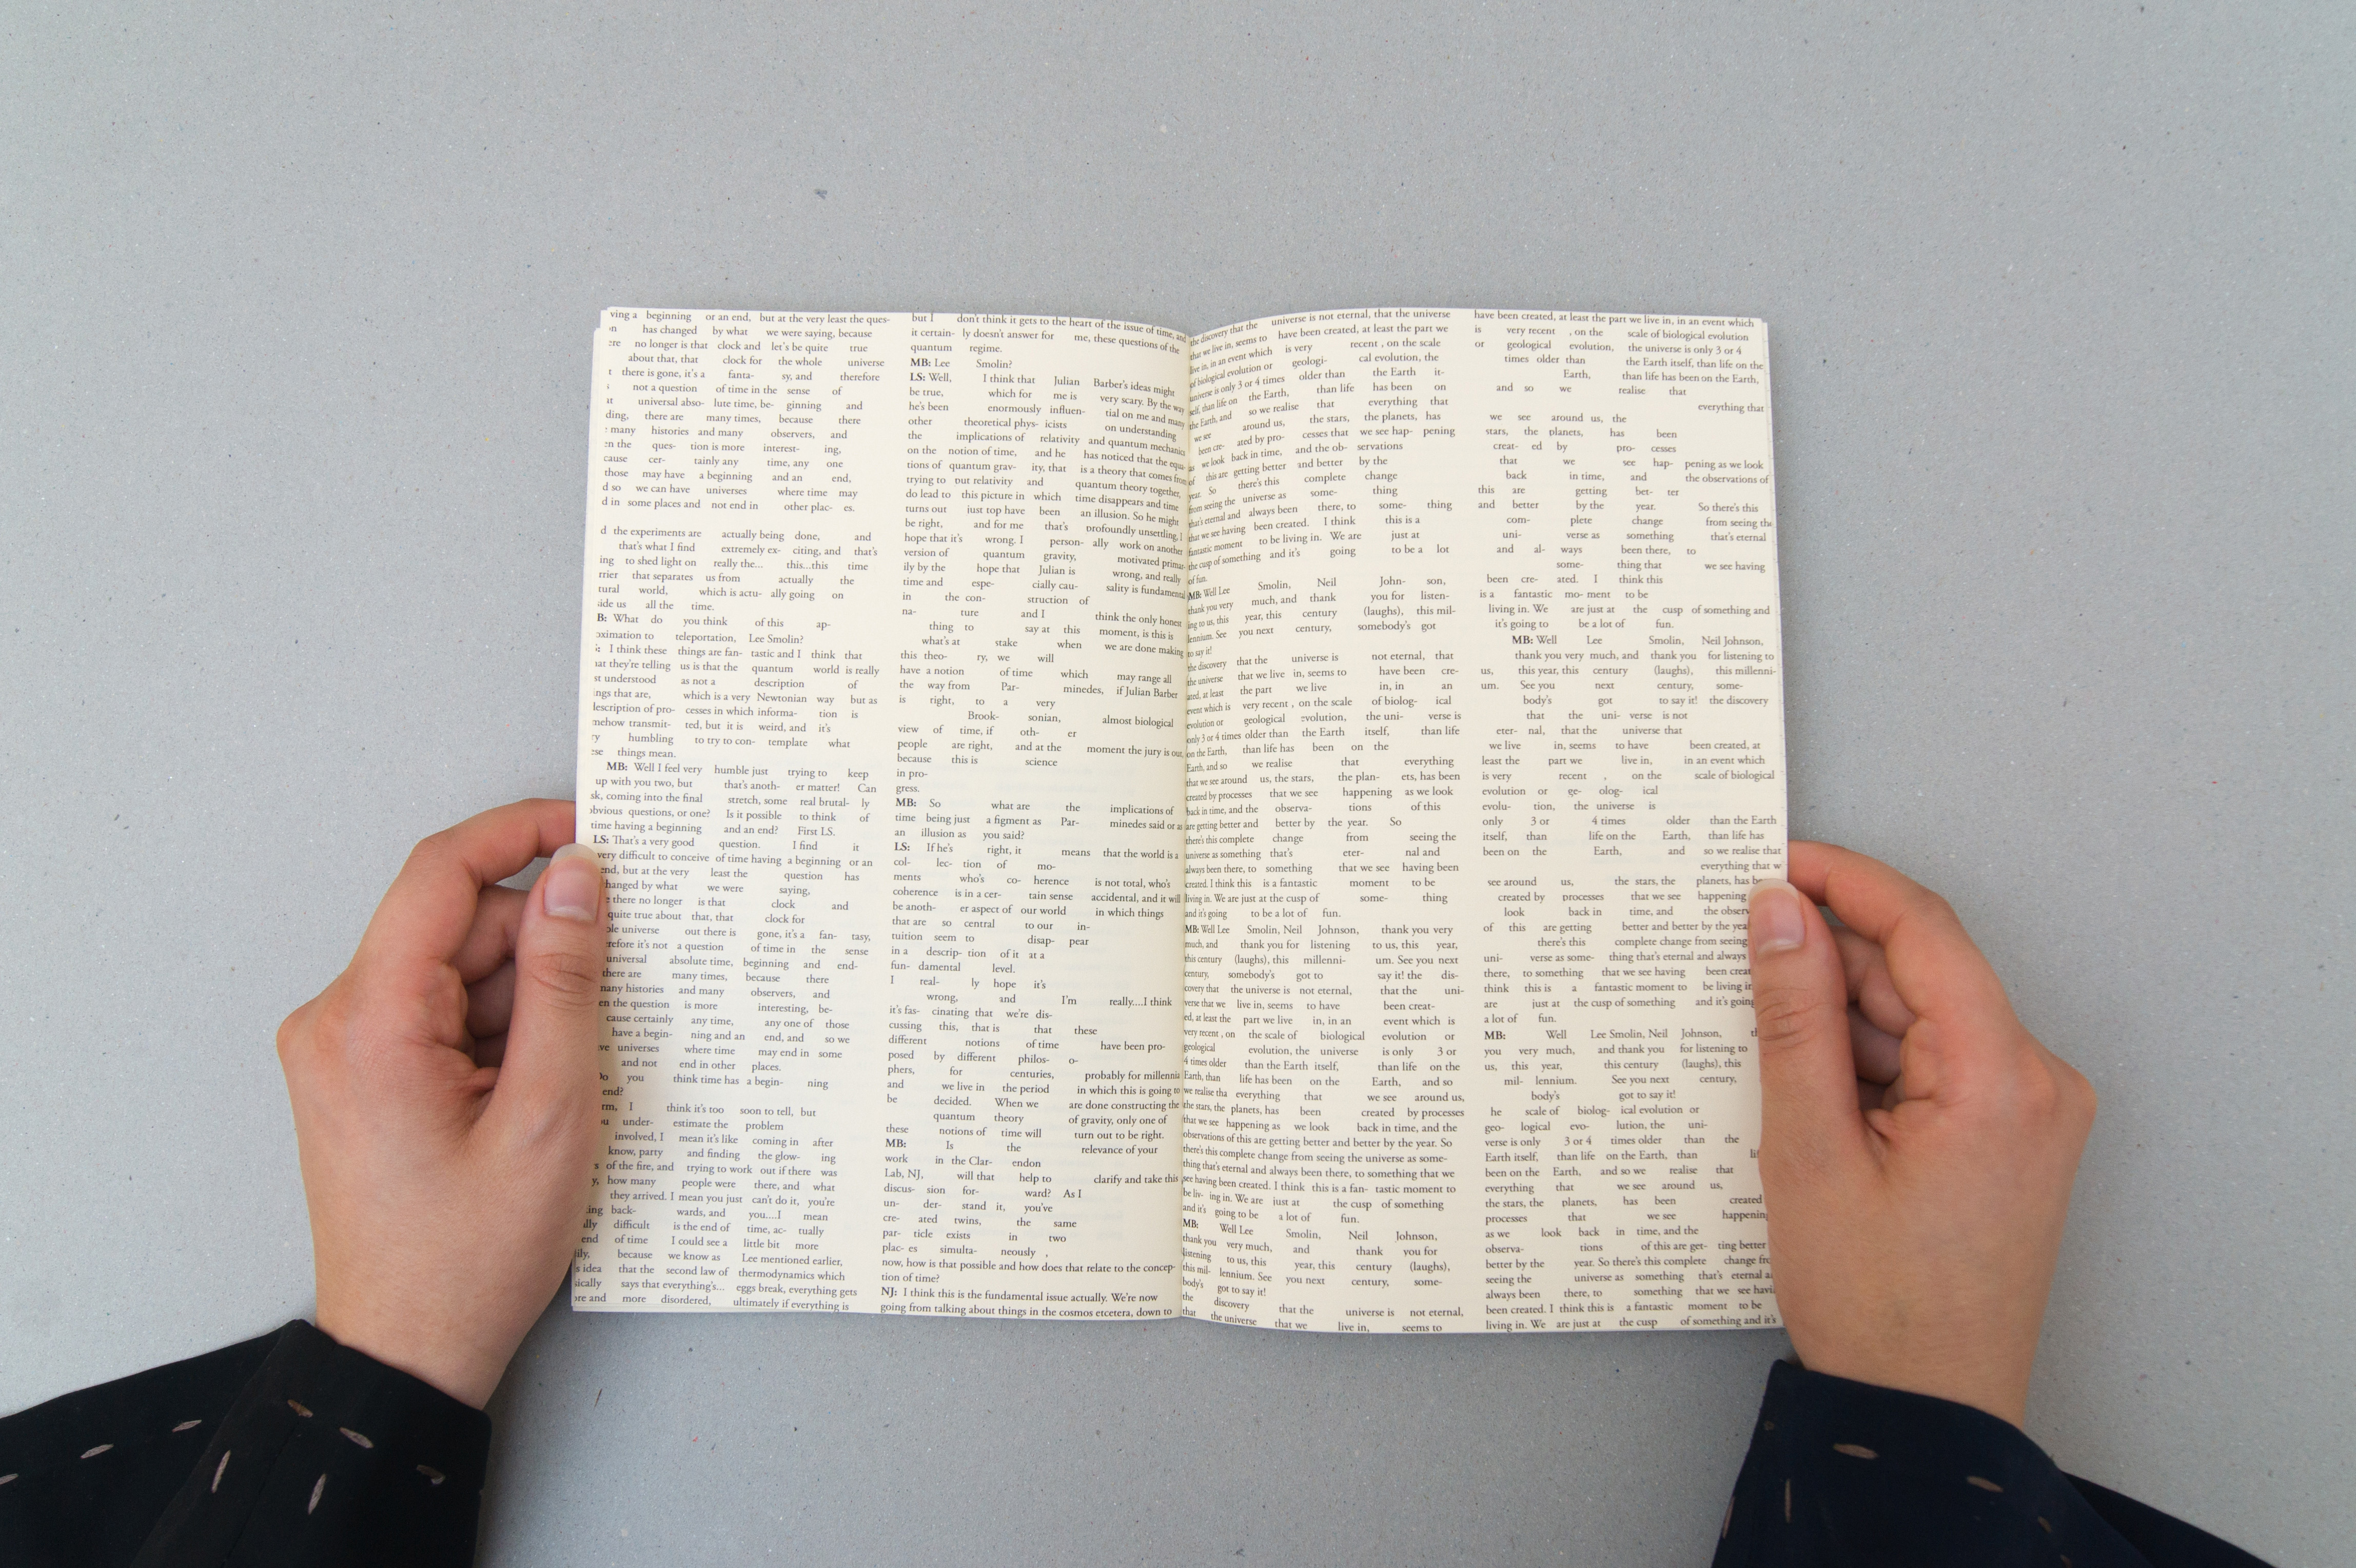 ving a beginning or an end, but at the very least the ques-
has changed by what we were saying, because
no longer is that clock and let's be quite true
about that, that clock for the whole universe
there is gone, it's a fanta- sy, and therefore
not a question of time in the sense of
universal abso- lute time, be- ginning and
ding, there are many times, because there
many histories and many observers, and
the ques- tion is more interest- ing,
cause cer- tainly any time, any one
those may have a beginning and an end,
d so we can have universes where time may
d in some places and not end in other plac- es.
d the experiments are actually being done, and
that's what I find extremely ex- citing, and that's
ing to shed light on really the... this...this time
rrier that separates us from actually the
tural world, which is actu- ally going on
side us all the time.
B: What do you think of this ap-
oximation to teleportation, Lee Smolin?
I think these things are fan- tastic and I think that
at they're telling us is that the quantum world is really
st understood as not a description of
ngs that are, which is a very Newtonian way but as
description of pro- cesses in which informa- tion is
mehow transmit- ted, but it is weird, and it's
ry humbling to try to con- template what
ese things mean.
MB: Well I feel very humble just trying to keep
up with you two, but that's anoth- er matter! Can
sk, coming into the final stretch, some real brutal- ly
obvious questions, or one? Is it possible to think of
time having a beginning and an end? First LS.
LS: That's a very good question. I find it
very difficult to conceive of time having a beginning or an
end, but at the very least the question has
hanged by what we were saying,
there no longer is that clock and
quite true about that, that clock for
ole universe out there is gone, it's a fan- tasy,
refore it's not a question of time in the sense
universal absolute time, beginning and end-
there are many times, because there
many histories and many observers, and
en the question is more interesting, be-
cause certainly any time, any one of those
have a begin- ning and an end, and so we
ve universes where time may end in some
and not end in other places.
Do you think time has a begin- ning
end?
rm, I think it's too soon to tell, but
ou under- estimate the problem
involved, I mean it's like coming in after
know, party and finding the glow- ing
s of the fire, and trying to work out if there was
y, how many people were there, and what
they arrived. I mean you just can't do it, you're
ing back- wards, and you....I mean
ally difficult is the end of time, ac- tually
end of time I could see a little bit more
ily, because we know as Lee mentioned earlier,
s idea that the second law of thermodynamics which
sically says that everything's... eggs break, everything gets
ore and more disordered, ultimately if everything is
but I don't think it gets to the heart of the issue of time, and
it certain- ly doesn't answer for me, these questions of the
quantum regime.
MB: Lee Smolin?
LS: Well, I think that Julian Barber's ideas might
be true, which for me is very scary. By the way
he's been enormously influen- tial on me and many
other theoretical phys- icists on understanding
the implications of relativity and quantum mechanics
on the notion of time, and he has noticed that the equa-
tions of quantum grav- ity, that is a theory that comes from
trying to put relativity and quantum theory together,
do lead to this picture in which time disappears and time
turns out just top have been an illusion. So he might
be right, and for me that's profoundly unsettling, I
hope that it's wrong. I person- ally work on another
version of quantum gravity, motivated primar-
ily by the hope that Julian is wrong, and really
time and espe- cially cau- sality is fundamental
in the con- struction of
na- ture and I think the only honest
thing to say at this moment, is this is
what's at stake when we are done making
this theo- ry, we will
have a notion of time which may range all
the way from Par- minedes, if Julian Barber
is right, to a very
Brook- sonian, almost biological
view of time, if oth- er
people are right, and at the moment the jury is out,
because this is science
in pro-
gress.
MB: So what are the implications of
time being just a figment as Par- minedes said or as
an illusion as you said?
LS: If he's right, it means that the world is a
col- lec- tion of mo-
ments who's co- herence is not total, who's
coherence is in a cer- tain sense accidental, and it will
be anoth- er aspect of our world in which things
that are so central to our in-
tuition seem to disap- pear
in a descrip- tion of it at a
fun- damental level.
I real- ly hope it's
wrong, and I'm really....I think
it's fas- cinating that we're dis-
cussing this, that is that these
different notions of time have been pro-
posed by different philos- o-
phers, for centuries, probably for millennia
and we live in the period in which this is going to
be decided. When we are done constructing the
quantum theory of gravity, only one of
these notions of time will turn out to be right.
MB: Is the relevance of your
work in the Clar- endon
Lab, NJ, will that help to clarify and take this
discus- sion for- ward? As I
un- der- stand it, you've
cre- ated twins, the same
par- ticle exists in two
plac- es simulta- neously ,
now, how is that possible and how does that relate to the concep-
tion of time?
NJ: I think this is the fundamental issue actually. We're now
going from talking about things in the cosmos etcetera, down to
the discovery that the universe is not eternal, that the universe
that we live in, seems to have been created, at least the part we
live in, in an event which is very recent , on the scale
of biological evolution or geologi- cal evolution, the
universe is only 3 or 4 times older than the Earth it-
self, than life on the Earth, than life has been on
the Earth, and so we realise that everything that
we see around us, the stars, the planets, has
been cre- ated by pro- cesses that we see hap- pening
as we look back in time, and the ob- servations
of this are getting better and better by the
year. So there's this complete change
from seeing the universe as some- thing
that's eternal and always been there, to some- thing
that we see having been created. I think this is a
fantastic moment to be living in. We are just at
the cusp of something and it's going to be a lot
of fun.
MB: Well Lee Smolin, Neil John- son,
thank you very much, and thank you for listen-
ing to us, this year, this century (laughs), this mil-
lennium. See you next century, somebody's got
to say it!
the discovery that the universe is not eternal, that
the universe that we live in, seems to have been cre-
ated, at least the part we live in, in an
event which is very recent , on the scale of biolog- ical
evolution or geological evolution, the uni- verse is
only 3 or 4 times older than the Earth itself, than life
on the Earth, than life has been on the
Earth, and so we realise that everything
that we see around us, the stars, the plan- ets, has been
created by processes that we see happening as we look
back in time, and the observa- tions of this
are getting better and better by the year. So
there's this complete change from seeing the
universe as something that's eter- nal and
always been there, to something that we see having been
created. I think this is a fantastic moment to be
living in. We are just at the cusp of some- thing
and it's going to be a lot of fun.
MB: Well Lee Smolin, Neil Johnson, thank you very
much, and thank you for listening to us, this year,
this century (laughs), this millenni- um. See you next
century, somebody's got to say it! the dis-
covery that the universe is not eternal, that the uni-
verse that we live in, seems to have been creat-
ed, at least the part we live in, in an event which is
very recent , on the scale of biological evolution or
geological evolution, the universe is only 3 or
4 times older than the Earth itself, than life on the
Earth, than life has been on the Earth, and so
we realise tha everything that we see around us,
the stars, the planets, has been created by processes
that we see happening as we look back in time, and the
observations of this are getting better and better by the year. So
there's this complete change from seeing the universe as some-
thing that's eternal and always been there, to something that we
see having been created. I think this is a fan- tastic moment to
be liv- ing in. We are just at the cusp of something
and it's going to be a lot of fun.
MB: Well Lee Smolin, Neil Johnson,
thank you very much, and thank you for
listening to us, this year, this century (laughs),
this mil- lennium. See you next century, some-
body's got to say it!
the discovery that the universe is not eternal,
that the universe that we live in, seems to
have been created, at least the part we live in, in an event which
is very recent , on the scale of biological evolution
or geological evolution, the universe is only 3 or 4
times older than the Earth itself, than life on the
Earth, than life has been on the Earth,
and so we realise that
everything that
we see around us, the
stars, the planets, has been
creat- ed by pro- cesses
that we see hap- pening as we look
back in time, and the observations of
this are getting bet- ter
and better by the year. So there's this
com- plete change from seeing the
uni- verse as something that's eternal
and al- ways been there, to
some- thing that we see having
been cre- ated. I think this
is a fantastic mo- ment to be
living in. We are just at the cusp of something and
it's going to be a lot of fun.
MB: Well Lee Smolin, Neil Johnson,
thank you very much, and thank you for listening to
us, this year, this century (laughs), this millenni-
um. See you next century, some-
body's got to say it! the discovery
that the uni- verse is not
eter- nal, that the universe that
we live in, seems to have been created, at
least the part we live in, in an event which
is very recent , on the scale of biological
evolution or ge- olog- ical
evolu- tion, the universe is
only 3 or 4 times older than the Earth
itself, than life on the Earth, than life has
been on the Earth, and so we realise that
everything that w
see around us, the stars, the planets, has be
created by processes that we see happening
look back in time, and the observ
of this are getting better and better by the yea
there's this complete change from seeing
uni- verse as some- thing that's eternal and always
there, to something that we see having been creat
think this is a fantastic moment to be living in
are just at the cusp of something and it's going
a lot of fun.
MB: Well Lee Smolin, Neil Johnson, th
you very much, and thank you for listening to
us, this year, this century (laughs), this
mil- lennium. See you next century,
body's got to say it!
he scale of biolog- ical evolution or
geo- logical evo- lution, the uni-
verse is only 3 or 4 times older than the
Earth itself, than life on the Earth, than lif
been on the Earth, and so we realise that
everything that we see around us,
the stars, the planets, has been created
processes that we see happening
as we look back in time, and the
observa- tions of this are get- ting better
better by the year. So there's this complete change fro
seeing the universe as something that's eternal a
always been there, to something that we see havi
been created. I think this is a fantastic moment to be
living in. We are just at the cusp of something and it's